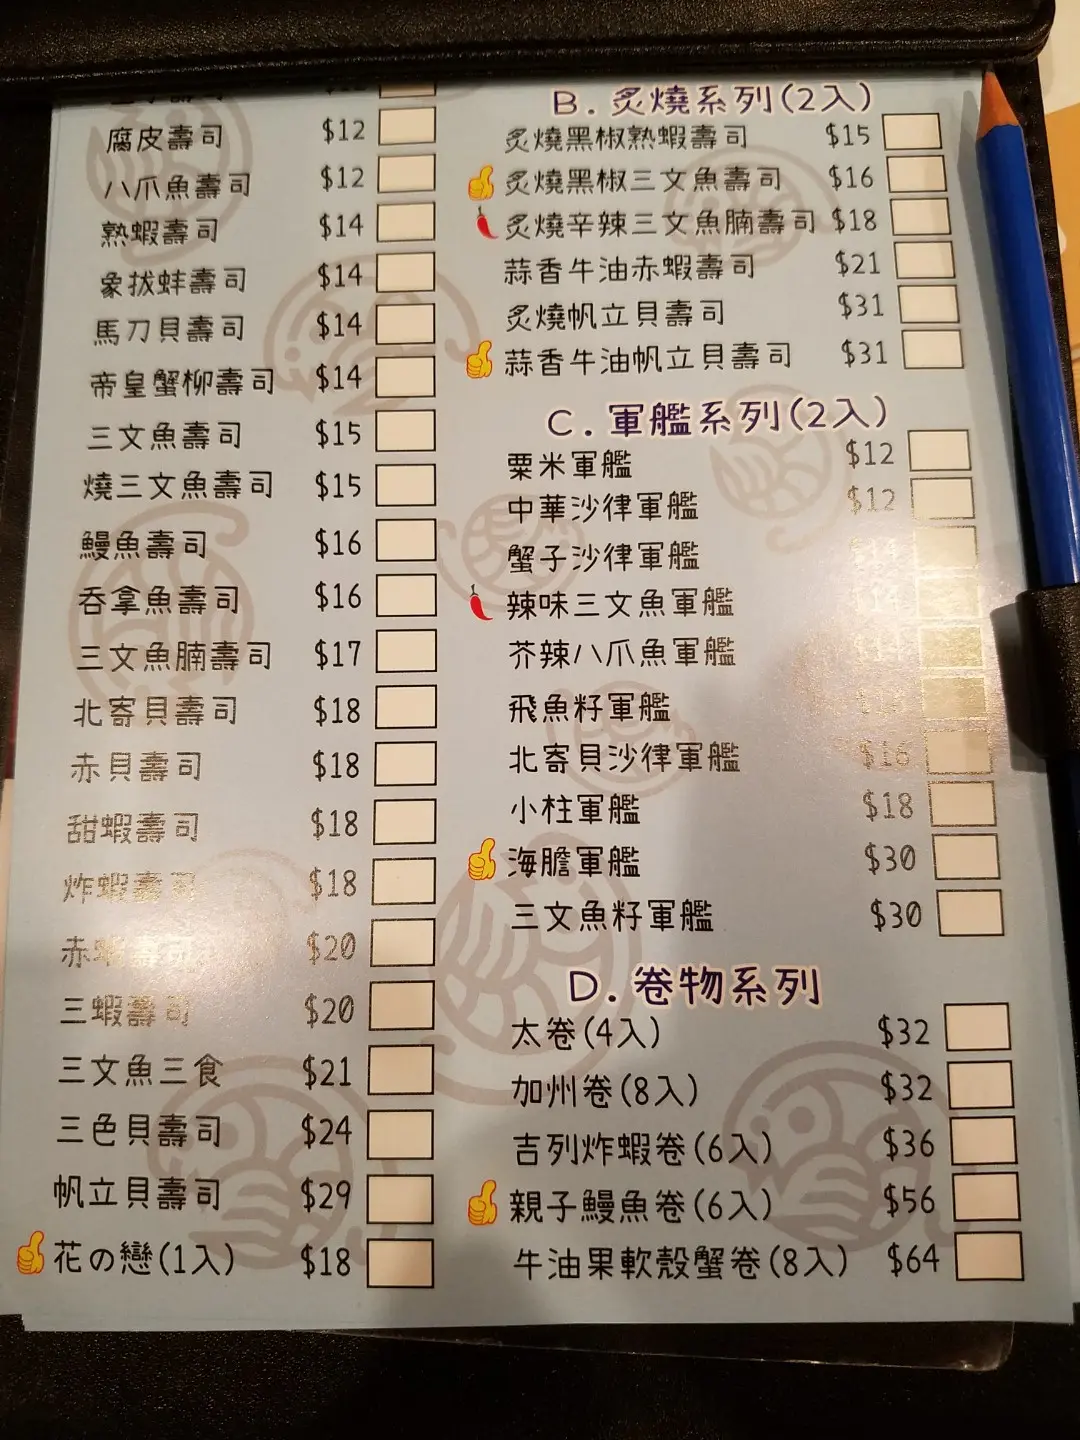 腐皮壽司 $12
八爪魚壽司 $12
熟蝦壽司 $14
象拔蚌壽司 $14
馬刀貝壽司 $14
帝皇蟹柳壽司 $14
三文魚壽司 $15
燒三文魚壽司 $15
鰻魚壽司 $16
吞拿魚壽司 $16
三文魚腩壽司 $17
北寄貝壽司 $18
赤貝壽司 $18
甜蝦壽司 $18
炸蝦壽司 $18
赤蝦壽司 $20
三蝦壽司 $20
三文魚三食 $21
三色貝壽司 $24
帆立貝壽司 $29
花の戀(1入) $18
B.炙燒系列(2入)
炙燒黑椒熟蝦壽司 $15
炙燒黑椒三文魚壽司 $16
炙燒辛辣三文魚腩壽司 $18
蒜香牛油赤蝦壽司 $21
炙燒帆立貝壽司 $31
蒜香牛油帆立貝壽司 $31
C.軍艦系列(2入)
粟米軍艦 $12
中華沙律軍艦 $12
蟹子沙律軍艦
辣味三文魚軍艦
芥辣八爪魚軍艦
飛魚籽軍艦
北寄貝沙律軍艦 $16
小柱軍艦 $18
海膽軍艦 $30
三文魚籽軍艦 $30
D.卷物系列
太卷(4入) $32
加州卷(8入) $32
吉列炸蝦卷(6入) $36
親子鰻魚卷(6入) $56
牛油果軟殼蟹卷(8入) $64